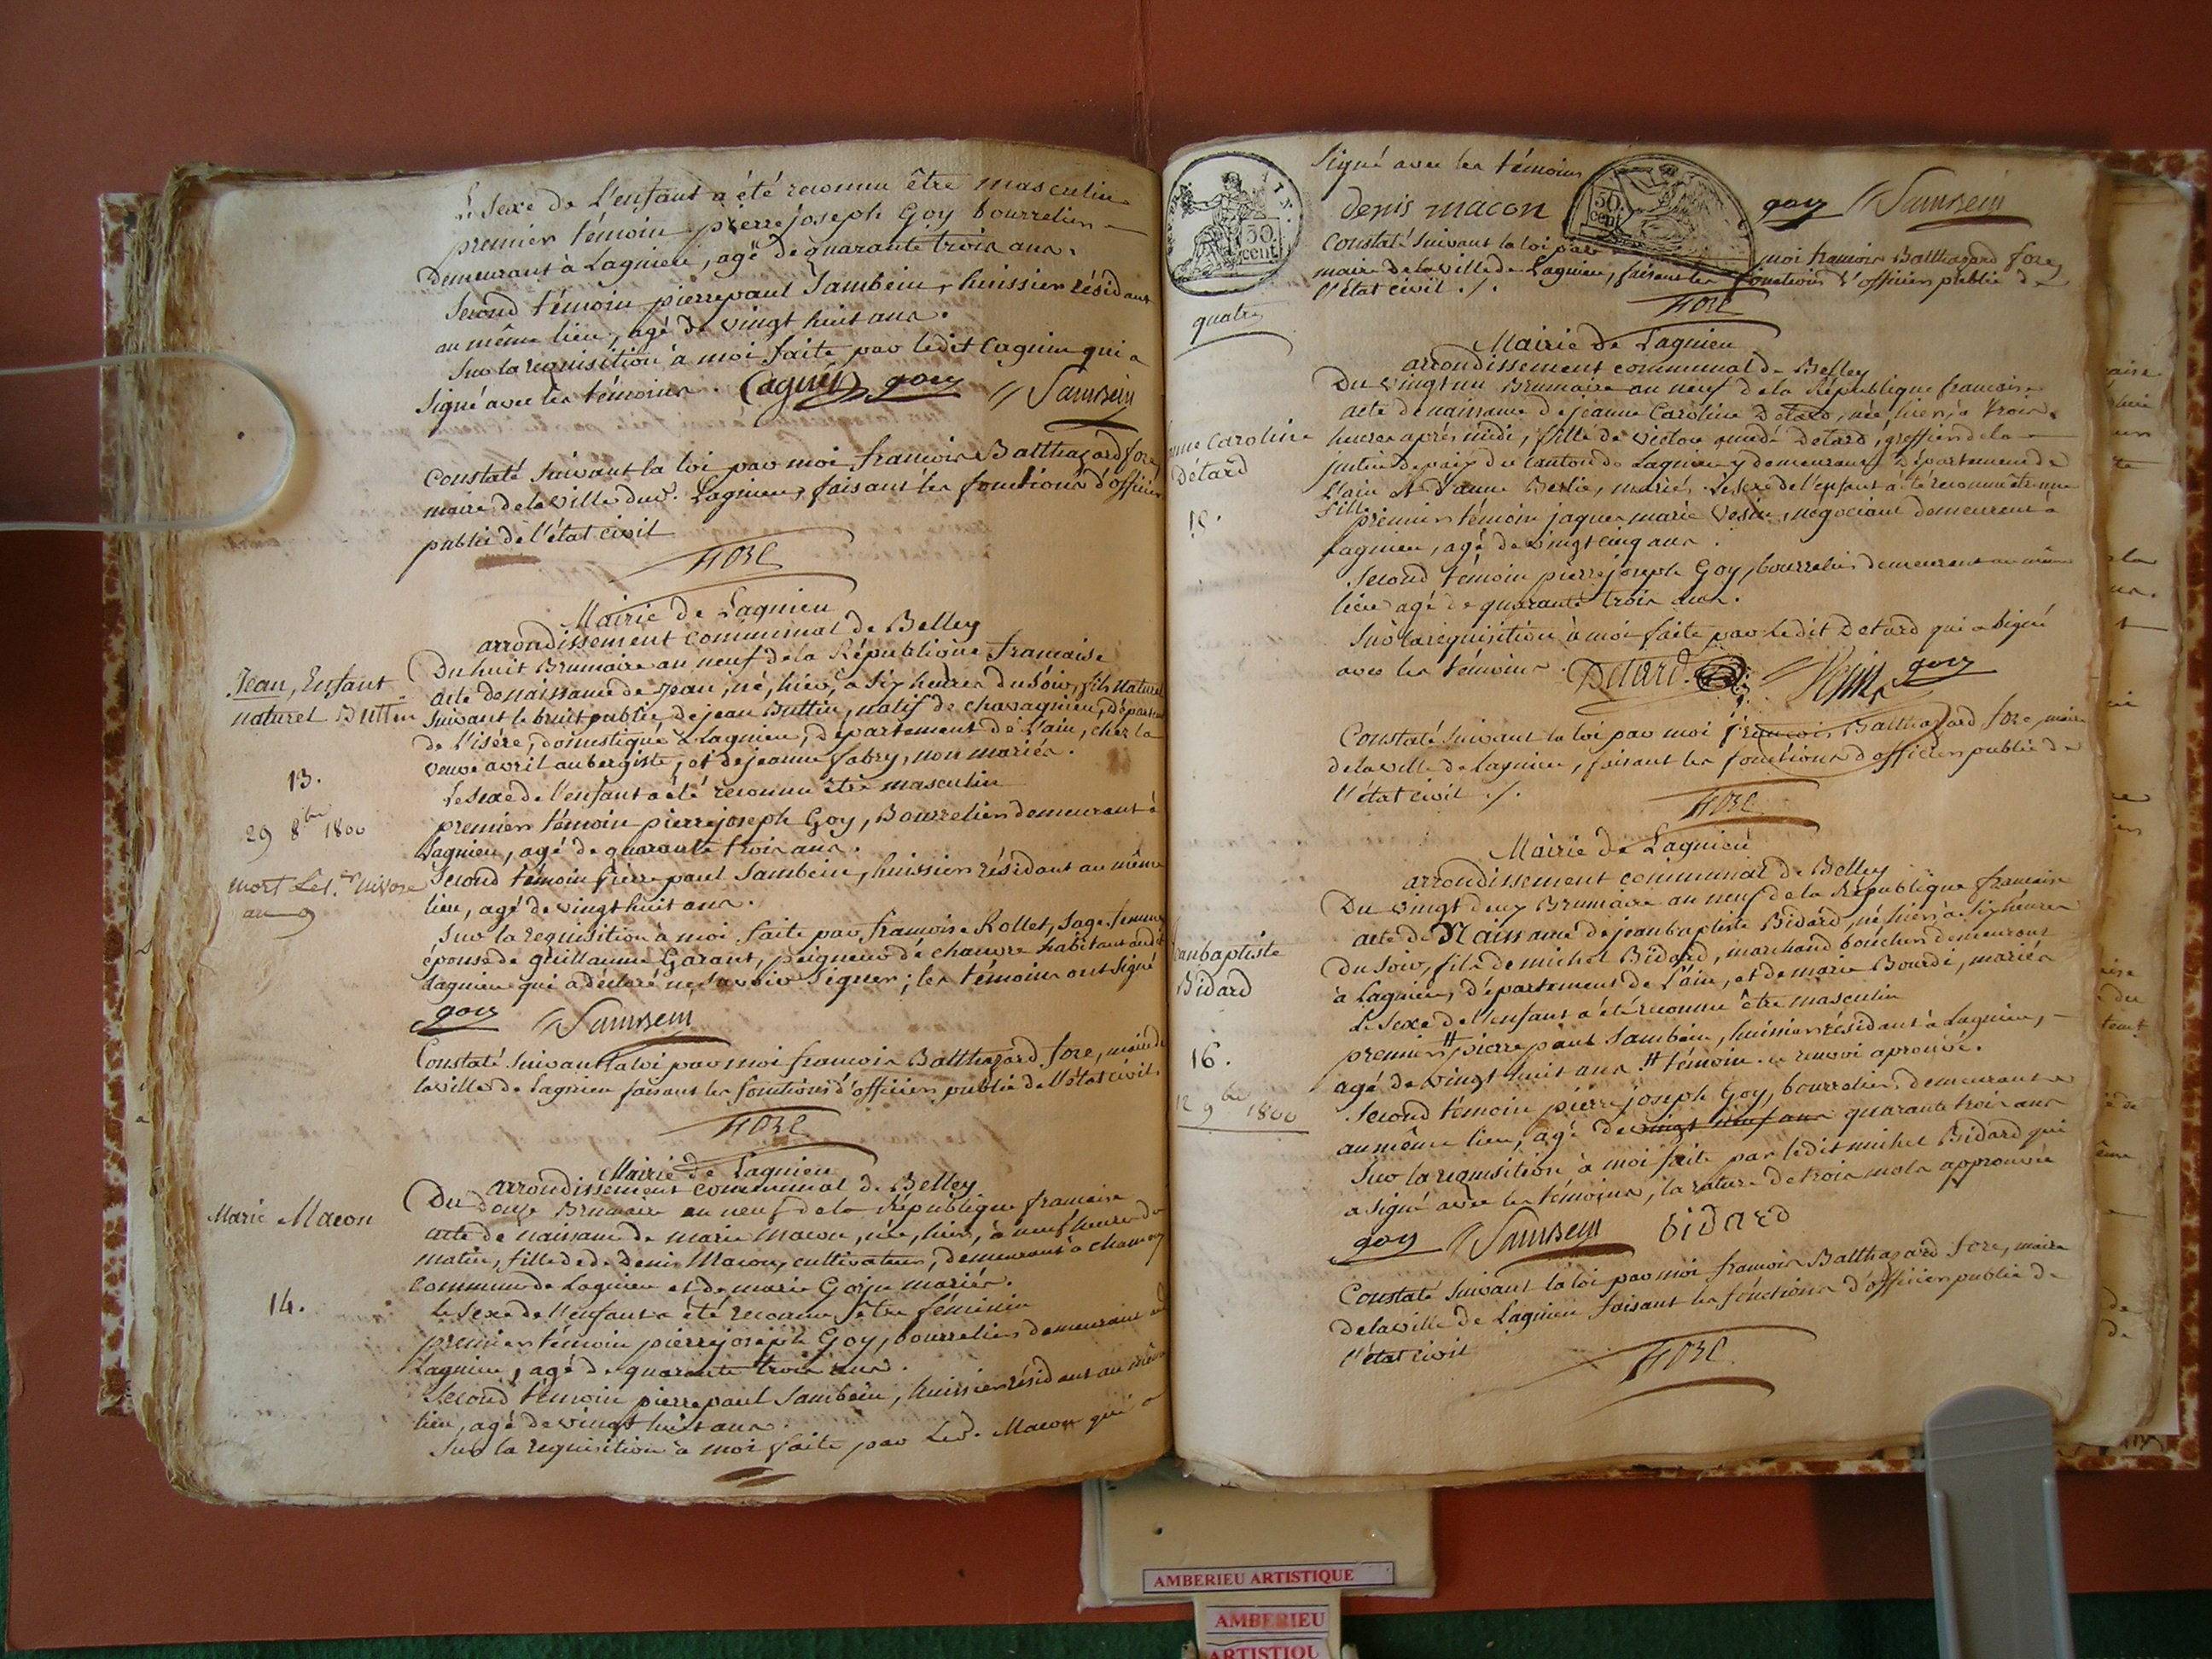 Le Sexe de L'enfant a été reconnu être masculin
premier témoin pierre joseph Goy bourrelier
demeurant à Lagnieu, agé de quarante trois ans.
Second témoin pierre paul Sambein, huissier résidant
au même lieu, agé de vingt huit ans.
Sur la requisition à moi faite par ledit Cagnin qui a
Signé avec les témoins. Cagnin goy Sambein
Constaté Suivant la loi par moi françois Balthazard fore
maire de la ville dud. Lagnieu, faisant les fonctions d'officier
public de l'état civil
fore
Mairie de Lagnieu
arrondissement communal de Belley
Jean, Enfant
naturel Buttin
13.
29 8bre 1800
mort le 1.er nivose
an 9
Du huit Brumaire an neuf de la République francaise
acte de naissance de Jean, né, hier, à Six heures du Soir, fils naturel
Suivant le bruit public, de jean Buttin, natif de chavagnieu, départ
de L'isére, domestique à Lagnieu, département de L'ain, chez la
veuve avril aubergiste, et de jeanne fabry, non mariés.
Le Sexe de l'enfant a été reconnu être masculin
premier témoin pierre joseph Goy, Bourrelier demeurant à
Lagnieu, agé de quarante trois ans.
Second témoin pierre paul Sambein, huissier résidant au même
lieu, agé de vingt huit ans.
Sur la requisition à moi faite par francoise Rollet, Sage femme
épouse de guillaume Garant, peigneur de chanvre habitant audit
Lagnieu qui a déclaré ne Savoir Signer; les témoins ont Signé
goy Sambein
Constaté Suivant la loi par moi francois Balthazard fore, maire de
la ville de Lagnieu faisant les fonctions d'officier public de l'état civil.
fore
Mairie de Lagnieu
arrondissement communal de Belley
Marie Macon
14.
Du douze Brumaire an neuf de la République francaise
acte de naissance de marie macon, née, hier, à neuf heures du
matin, fille de de Denis Macon, cultivateur, demeurant à
commune de Lagnieu et de marie mariés.
Le Sexe de l'enfant a été reconnu être féminin
premier témoin pierre joseph Goy, bourrelier demeurant
Lagnieu, agé de quarante trois ans.
Second témoin pierre paul Sambein, huissier résidant au même
lieu, agé de vingt huit ans.
Sur la requisition à moi faite par Led. Macon qui a
Signé avec les témoins
denis macon goy Sambein
50
cent
50.
cent
Constaté Suivant la loi par moi francois Balthazard fore
maire de la ville de Lagnieu, faisant les fonctions d'officier public de
l'état civil ./.
quatre
fore
Mairie de Lagnieu
arrondissement communal de Belley
nne Caroline
Détard
15.
Du vingt un Brumaire an neuf de la République francaise
acte de naissance de jeanne Caroline Détard, née, hier, à trois
heures après midi, fille de victor amedé Détard, greffier de la
justice de paix du canton de Lagnieu y demeurant département de
L'ain et d'anne Berlie, mariés. Le Sexe de l'enfant a été reconnu être une
fille
premier témoin jaques marie Vesin, négociant demeurant à
Lagnieu, agé de vingt cinq ans.
Second témoin pierre joseph Goy, bourrelier demeurant au même
lieu agé de quarante trois ans.
Sur la requisition à moi faite par Ledit Detard qui a Signé
avec les témoins. Détard. Vesin goy
Constaté Suivant la loi par moi francois Balthazard fore, maire
de la ville de Lagnieu, faisant les fonctions d'officier public de
l'état civil ./.
fore
Mairie de Lagnieu
arrondissement communal de Belley
eanbaptiste
Bidard
16.
12 9bre 1800
Du vingt deux Brumaire an neuf de la République francaise
acte de Naissance de jeanbaptiste Bidard, né hier, à Six heures
du Soir, fils de michel Bidard, marchand boucher demeurant
à Lagnieu, département de L'ain, et de marie Bourdi, mariés
Le Sexe de l'enfant a été reconnu être masculin
premier # pierre paul Sambein, huissier résidant à Lagnieu,
agé de vingt huit ans. # témoin. ce renvoi aprouvé.
Second témoin pierre joseph Goy, bourrelier, demeurant
au même lieu, agé de vingt neuf ans quarante trois ans
Sur la requisition à moi faite par ledit michel Bidard qui
a Signé avec les témoins, la rature de trois mots approuvée
goy Sambein bidard
Constaté Suivant la loi par moi francois Balthazard fore, maire
de la ville de Lagnieu faisant les fonctions d'officier public de
l'état civil
fore
AMBERIEU ARTISTIQUE
AMBERIEU
ARTISTIQU